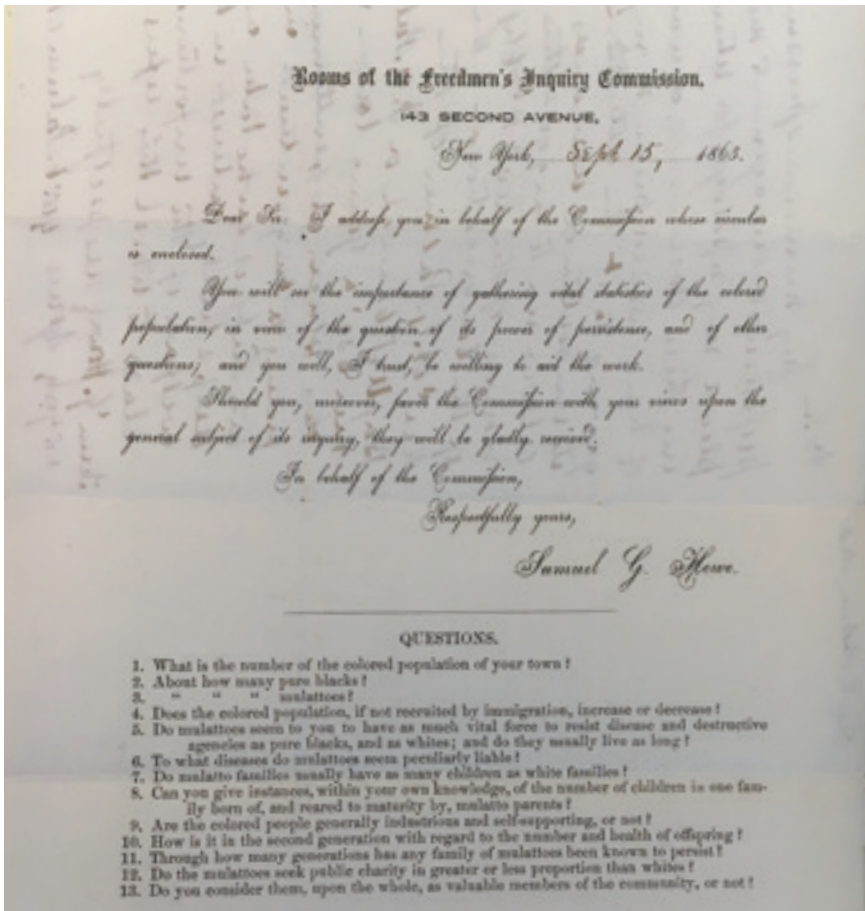 Rooms of the Freedmen's Inquiry Commission,
143 SECOND AVENUE,
New York, Sept 15, 1863.
Dear Sir: I address you in behalf of the Commission whose circular
is enclosed.
You will see the importance of gathering vital statistics of the colored
population, in view of the question of its power of persistence, and of other
questions; and you will, I trust, be willing to aid the work.
Should you, moreover, favor the Commission with your views upon the
general subject of its inquiry, they will be gladly received.
In behalf of the Commission,
Respectfully yours,
Samuel G. Howe.
QUESTIONS.
1. What is the number of the colored population of your town?
2. About how many pure blacks?
3. " " " mulattoes?
4. Does the colored population, if not recruited by immigration, increase or decrease?
5. Do mulattoes seem to you to have as much vital force to resist disease and destructive
agencies as pure blacks, and as whites; and do they usually live as long?
6. To what diseases do mulattoes seem peculiarly liable?
7. Do mulatto families usually have as many children as white families?
8. Can you give instances, within your own knowledge, of the number of children in one fam-
ily born of, and reared to maturity by, mulatto parents?
9. Are the colored people generally industrious and self-supporting, or not?
10. How is it in the second generation with regard to the number and health of offspring?
11. Through how many generations has any family of mulattoes been known to persist?
12. Do the mulattoes seek public charity in greater or less proportion than whites?
13. Do you consider them, upon the whole, as valuable members of the community, or not?